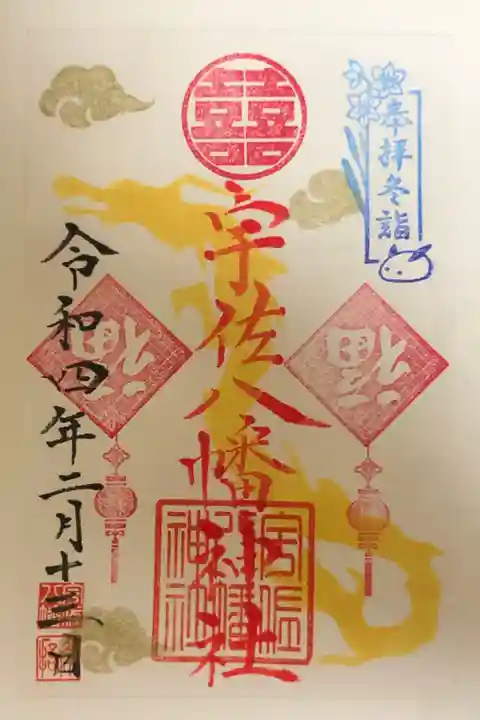 奉拝冬詣
囍
宇佐八幡神社
福
福
宇佐八幡神社
令和四年二月十三日